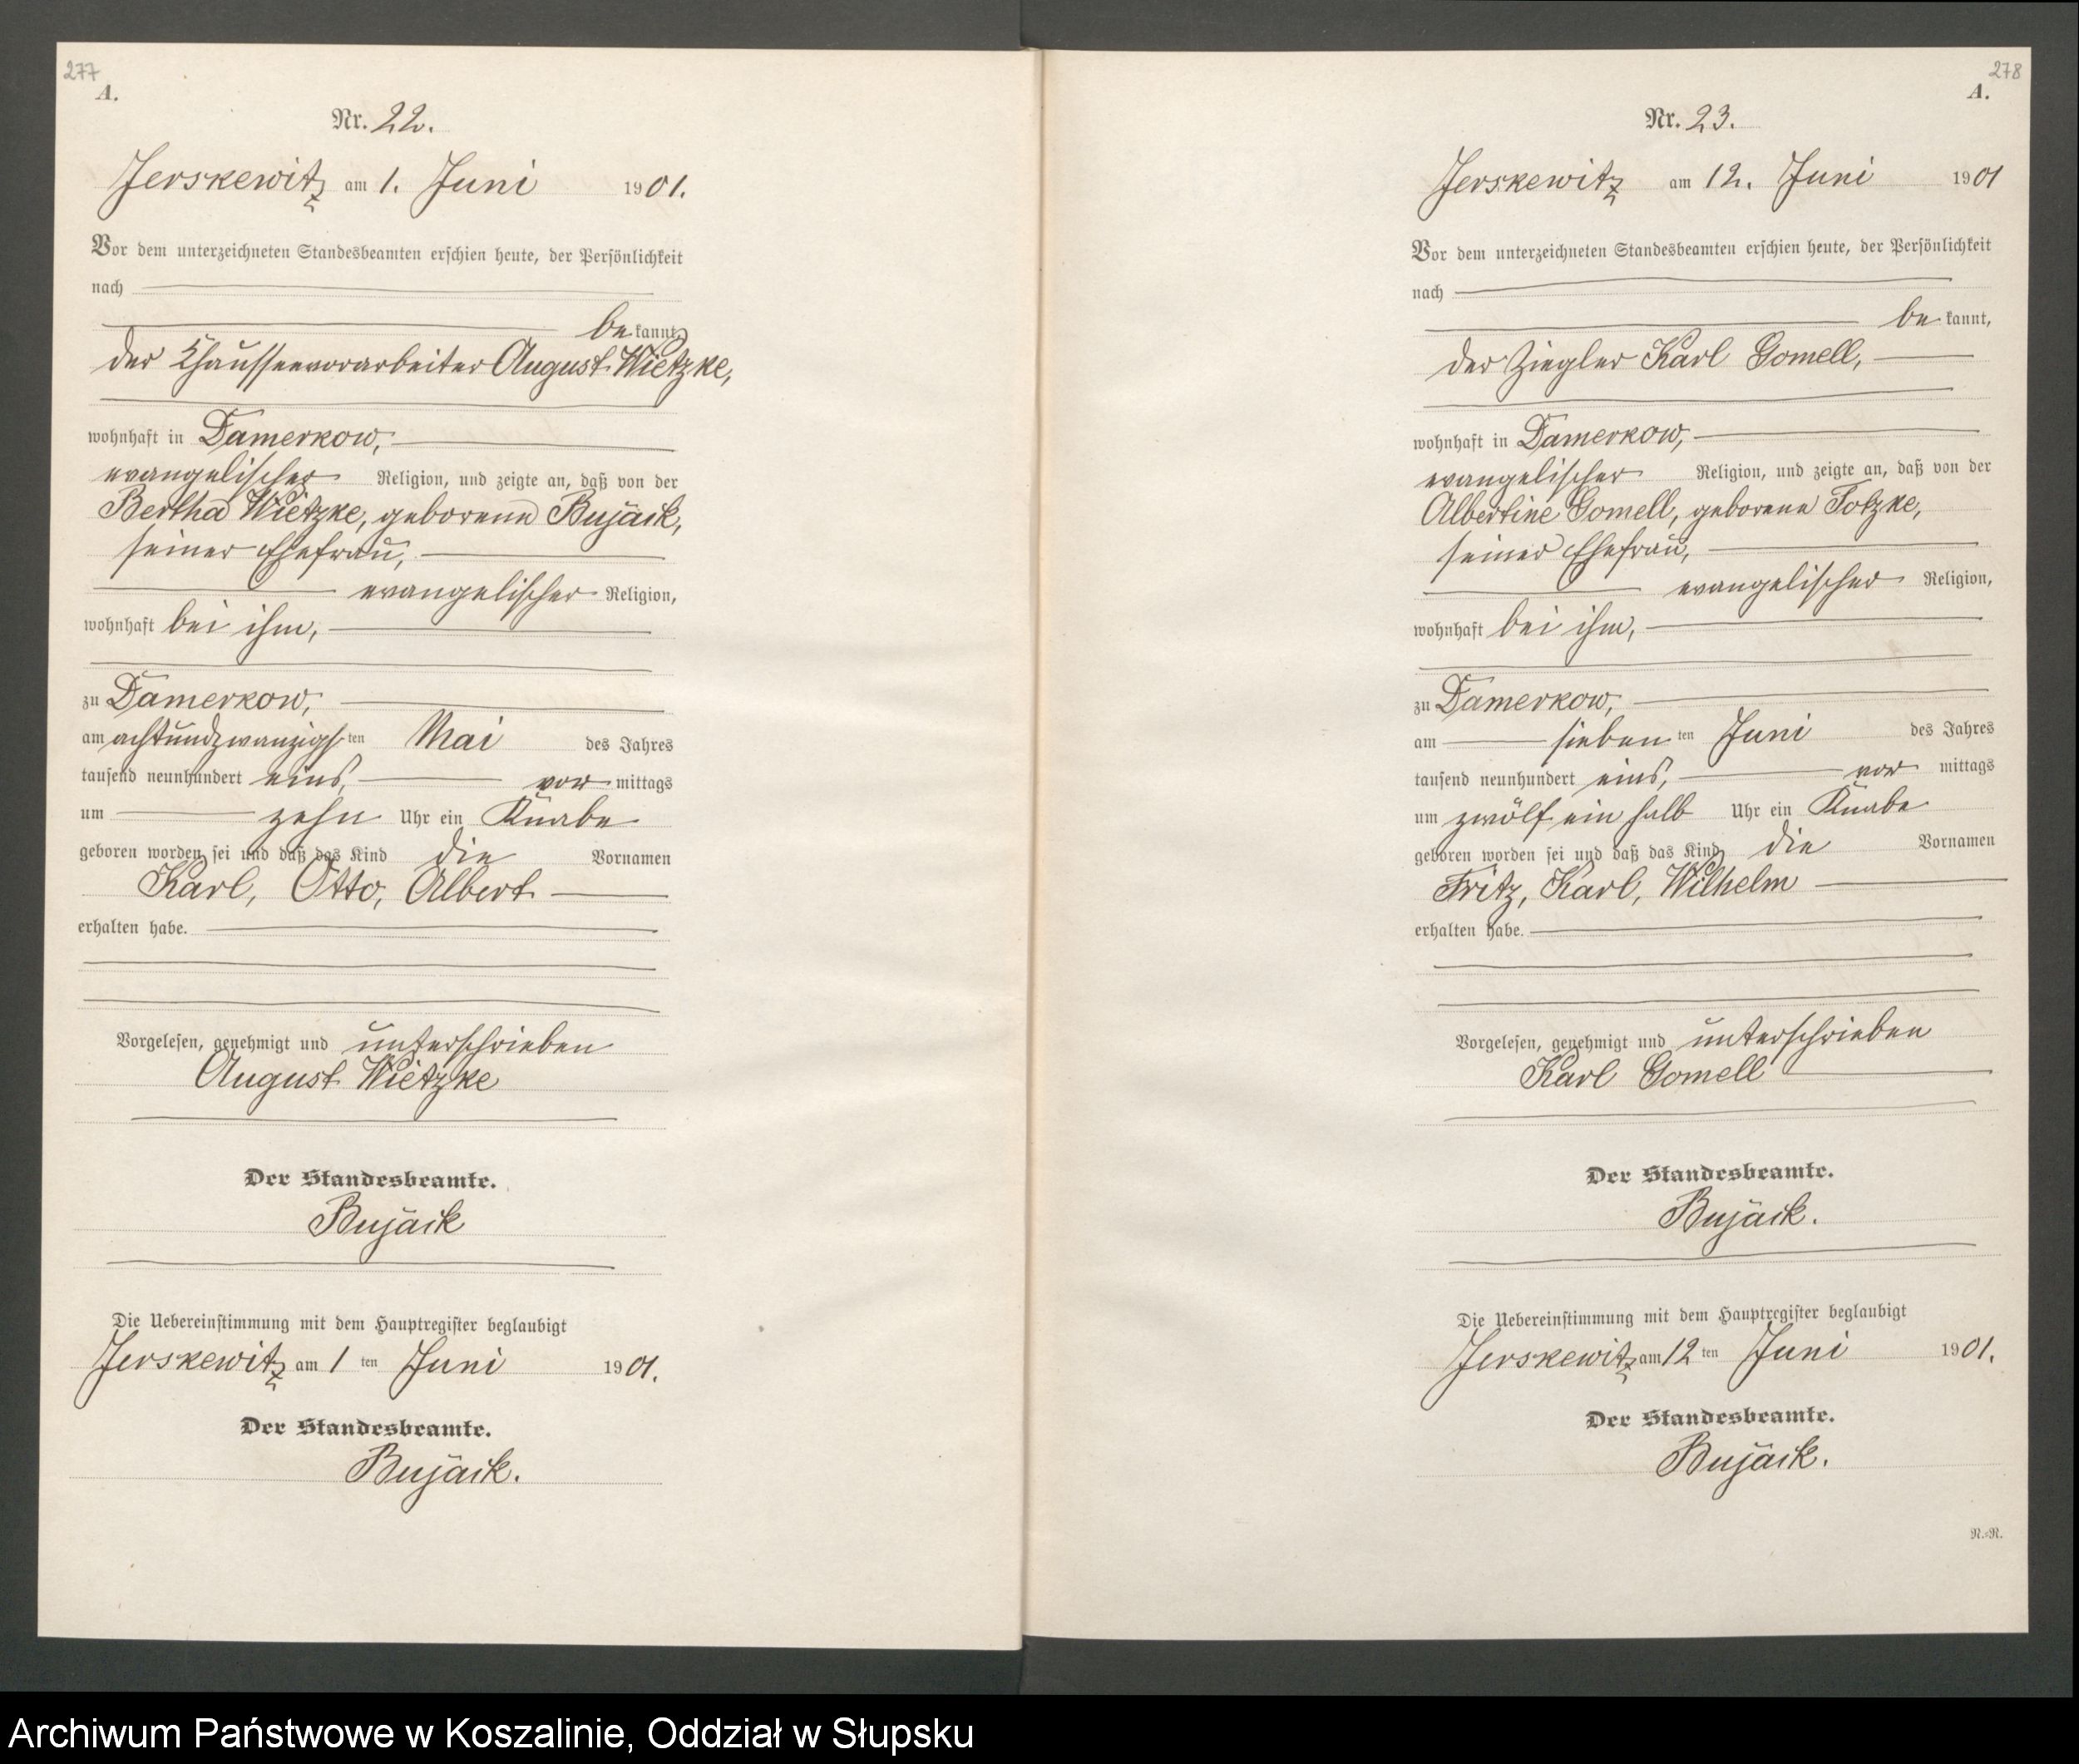 277
A.
Nr. 22.
Jerskewitz am 1. Juni 1901.
Vor dem unterzeichneten Standesbeamten erschien heute, der Persönlichkeit
nach
be kannt,
der Chausseevorarbeiter August Wietzke,
wohnhaft in Damerkow,
evangelischer Religion, und zeigte an, daß von der
Bertha Wietzke, geborene Bujack,
seiner Ehefrau,
evangelischer Religion,
wohnhaft bei ihm,
zu Damerkow,
am achtundzwanzigsten Mai des Jahres
tausend neunhundert eins, vor mittags
um zehn Uhr ein Knabe
geboren worden sei und daß das Kind die Vornamen
Karl, Otto, Albert
erhalten habe.
Vorgelesen, genehmigt und unterschrieben
August Wietzke
Der Standesbeamte.
Bujack
Die Uebereinstimmung mit dem Hauptregister beglaubigt
Jerskewitz am 1 ten Juni 1901.
Der Standesbeamte.
Bujack.
278
A.
Nr. 23.
Jerskewitz am 12. Juni 1901
Vor dem unterzeichneten Standesbeamten erschien heute, der Persönlichkeit
nach
be kannt,
der Ziegler Karl Gomell,
wohnhaft in Damerkow,
evangelischer Religion, und zeigte an, daß von der
Albertine Gomell, geborene Totzke,
seiner Ehefrau,
evangelischer Religion,
wohnhaft bei ihm,
zu Damerkow,
am sieben ten Juni des Jahres
tausend neunhundert eins, vor mittags
um zwölf ein halb Uhr ein Knabe
geboren worden sei und daß das Kind die Vornamen
Fritz, Karl, Wilhelm
erhalten habe.
Vorgelesen, genehmigt und unterschrieben
Karl Gomell
Der Standesbeamte.
Bujack.
Die Uebereinstimmung mit dem Hauptregister beglaubigt
Jerskewitz am 12 ten Juni 1901.
Der Standesbeamte.
Bujack.
N.=N.
Archiwum Państwowe w Koszalinie, Oddział w Słupsku